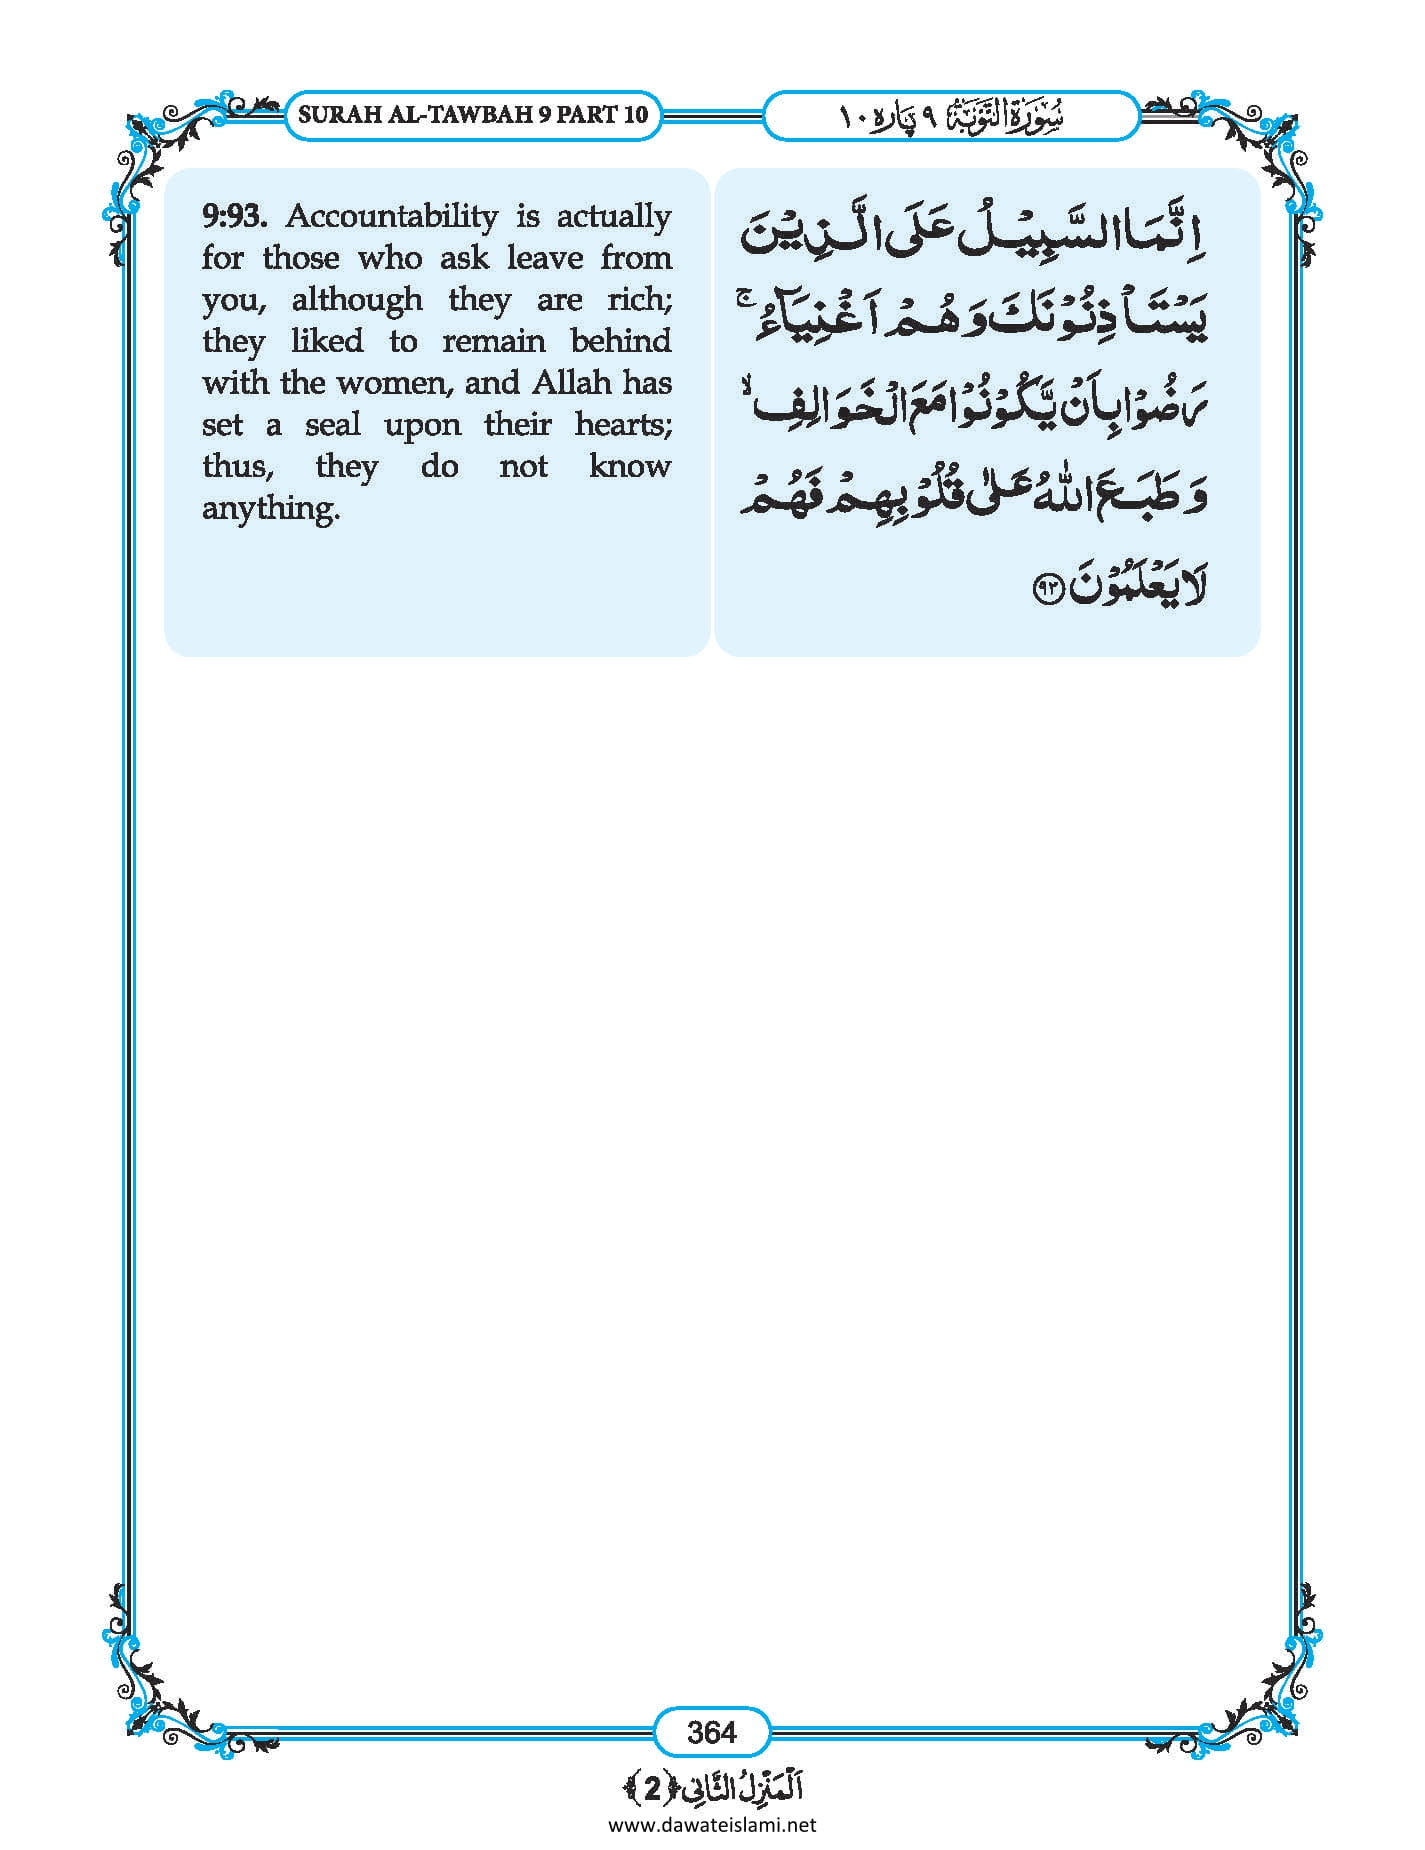 SURAH AL-TAWBAH 9 PART 10
سُوْرَةُ التَّوْبَةِ ٩ پَارَه ١٠
9:93. Accountability is actually
for those who ask leave from
you, although they are rich;
they liked to remain behind
with the women, and Allah has
set a seal upon their hearts;
thus, they do not know
anything.
اِنَّمَا السَّبِيْلُ عَلَى الَّذِيْنَ
يَسْتَاْذِنُوْنَكَ وَهُمْ اَغْنِيَآءُ ۚ
رَضُوْا بِاَنْ يَّكُوْنُوْا مَعَ الْخَوَالِفِ ۙ
وَطَبَعَ اللّٰهُ عَلٰى قُلُوْبِهِمْ فَهُمْ
لَا يَعْلَمُوْنَ ﴿٩٣﴾
364
اَلْمَنْزِلُ الثَّانِى ﴿2﴾
www.dawateislami.net